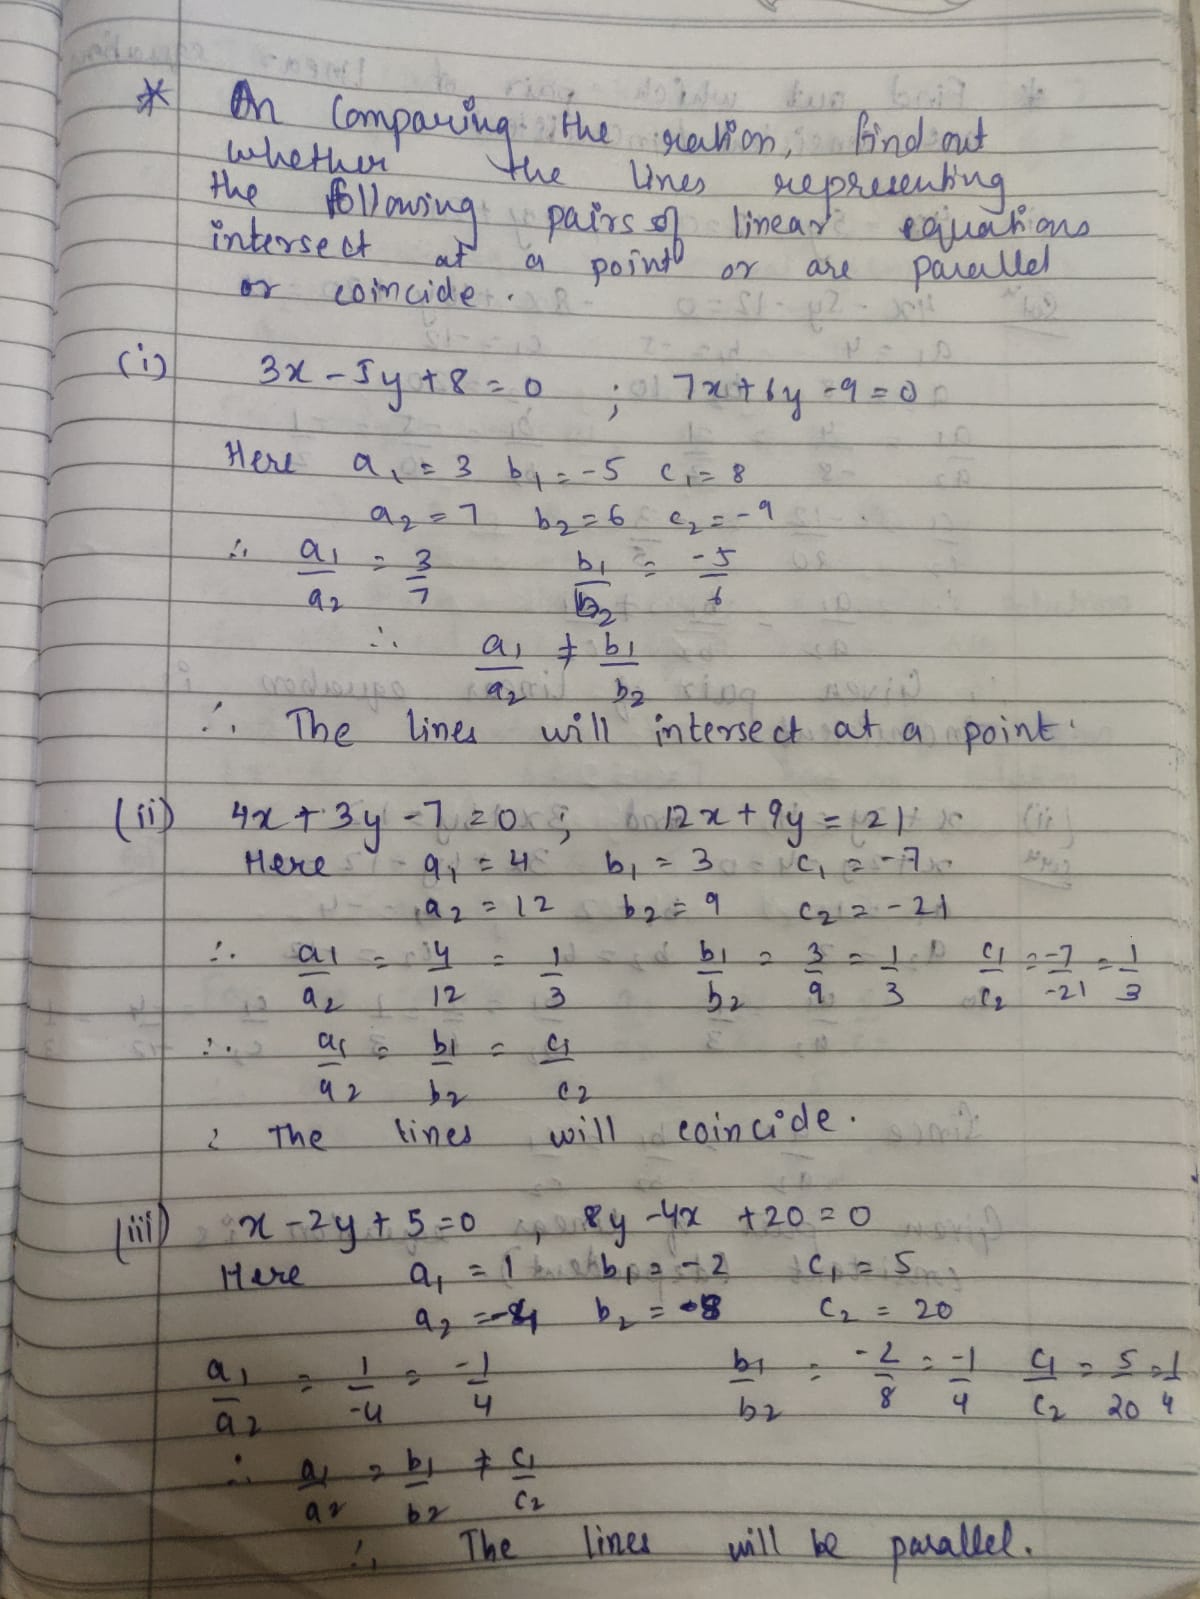 * On Comparing the ration, find out
whether the lines representing
the following pairs of linear equations
intersect at a point or are parallel
or coincide.
(i) 3x - 5y + 8 = 0 ; 7x + 6y - 9 = 0
Here a₁ = 3 b₁ = -5 c₁ = 8
a₂ = 7 b₂ = 6 c₂ = -9
∴ a₁/a₂ = 3/7 b₁/b₂ = -5/6
∴ a₁/a₂ ≠ b₁/b₂
∴ The lines will intersect at a point.
(ii) 4x + 3y - 7 = 0 ; 12x + 9y = 21
Here a₁ = 4 b₁ = 3 c₁ = -7
a₂ = 12 b₂ = 9 c₂ = -21
∴ a₁/a₂ = 4/12 = 1/3 b₁/b₂ = 3/9 = 1/3 c₁/c₂ = -7/-21 = 1/3
∴ a₁/a₂ = b₁/b₂ = c₁/c₂
∴ The lines will coincide.
(iii) x - 2y + 5 = 0 , 8y - 4x + 20 = 0
Here a₁ = 1 b₁ = -2 c₁ = 5
a₂ = -4 b₂ = 8 c₂ = 20
a₁/a₂ = 1/-4 = -1/4 b₁/b₂ = -2/8 = -1/4 c₁/c₂ = 5/20 = 1/4
∴ a₁/a₂ = b₁/b₂ ≠ c₁/c₂
∴ The lines will be parallel.